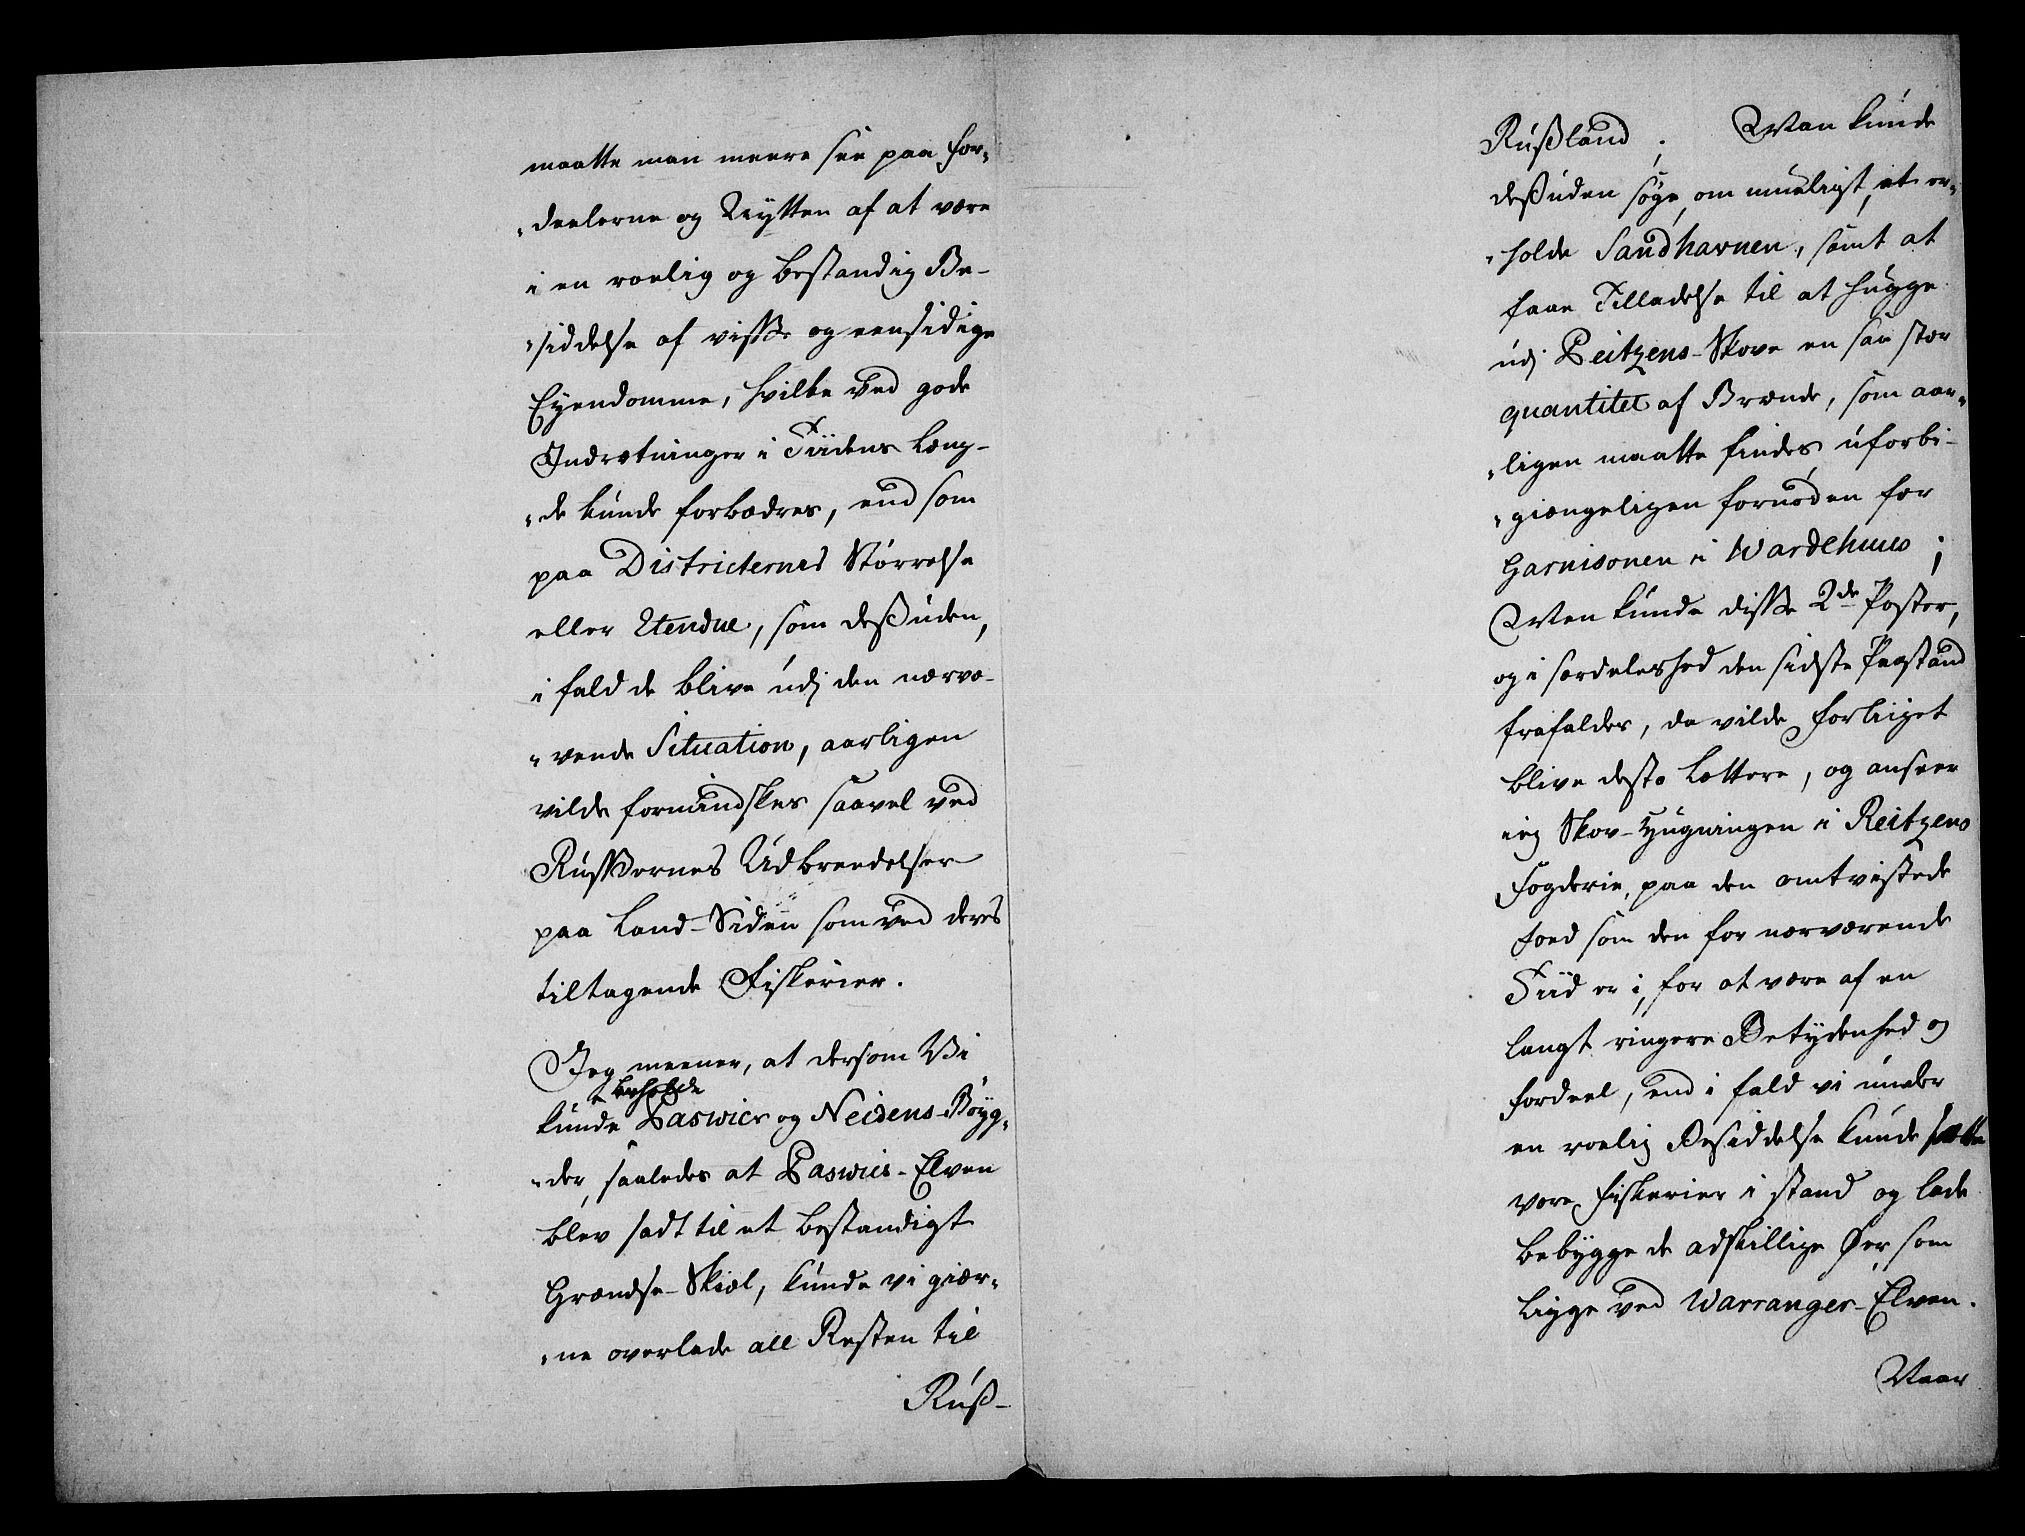 maatte man meere see paa For-
"deelerne og Nytten af at være
i en roelig og bestandig Be-
"siddelse af visse og eensidige
Eyendomme, hvilke ved gode
Indretninger i Tiidens Læng-
"de kunde forbedres, end som
paa Districternes Størrelse
eller Etendue, som desuden,
i fald de blive udj den nærvæ-
"rende Situation, aarligen
vilde formindskes saavel ved
Russernes Udbreedelser
paa Land-Siden som ved deres
tiltagende Fiskerier.
Jeg meener, at dersom Vi
beholde
kunde Paswics og Neidens-Böyg-
"der, saaledes at Paswics-Elven
blev sadt til et bestandigt
Grændse-Skiæl, kunde vi giær-
"ne overlade all Resten til
Ruß-
Rußland; Man kunde
desuden søge, om mueligt, at er-
"holde Sandhavnen, samt at
faae Tilladelse til at hugge
udj Peitzens-Skove en saa stor
quantitet af Brænde, som aar-
"ligen maatte findes uforbi-
"giængeligen fornøden for
Garnisonen i Wardehuus;
Men kunde disse 2de Poster,
og i særdeleshed den sidste Paastand
frafaldes, da vilde Forliiget
blive desto lættere, og anseer
ieg Skov-Hugningen i Peitzens
Fogderie, paa den omtvistede
Foed som den for nærværende
Tiid er i, for at være af en
langt ringere Betydenhed og
Fordeel, end i fald vi under
en roelig Besiddelse kunde sætte
vore Fiskerier i stand og lade
bebygge de adskillige Øer, som
ligge ved Warranger-Elven.
Naar